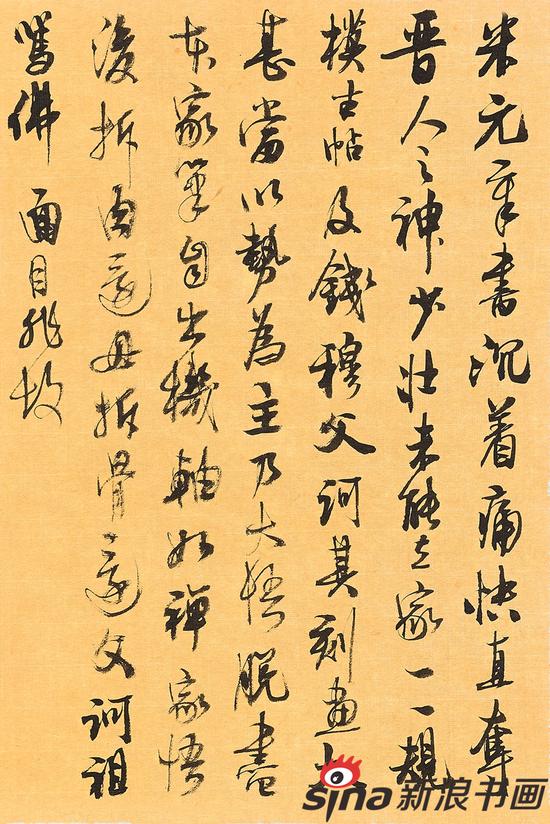 米元章書沉着痛快直奪
晋人之神少壯未能立家一一規
模古帖及錢穆父訶其刻畫太
甚當以勢為主乃大悟脫盡
本家筆自出機軸如禪家悟
後拆肉還母拆骨還父訶祖
罵佛 面目非故
sina新浪书画